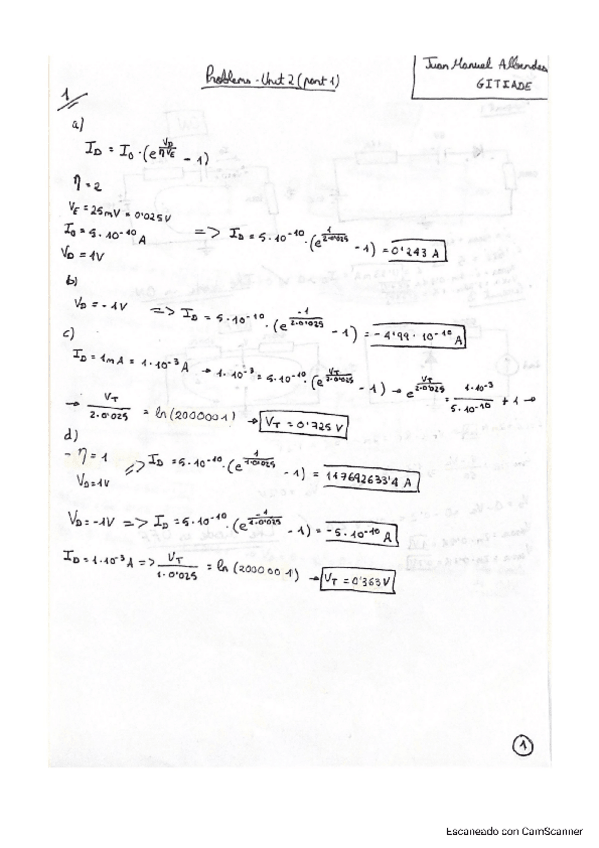 Problems - Unit 2 (part 1)
Juan Manuel
GITIADE
1
a)
I_D = I_0 · (e^(V_D/ηV_E) - 1)
η = 2
V_E = 25mV = 0'025V
I_0 = 5·10^-10 A
V_D = 1V
=> I_D = 5·10^-10 · (e^(1/2·0'025) - 1) = 0'243 A
b)
V_D = -1V => I_D = 5·10^-10 · (e^(-1/2·0'025) - 1) = -4'99·10^-10 A
c)
I_D = 1mA = 1·10^-3 A → 1·10^-3 = 5·10^-10 · (e^(V_T/2·0'025) - 1) → e^(V_T/2·0'025) = 1·10^-3/5·10^-10 + 1 →
→ V_T/2·0'025 = ln(2000001) → V_T = 0'725 V
d)
- η = 1
V_D = 1V
=> I_D = 5·10^-10 · (e^(1/1·0'025) - 1) = 117692633'4 A
V_D = -1V => I_D = 5·10^-10 · (e^(-1/1·0'025) - 1) = -5·10^-10 A
I_D = 1·10^-3 A => V_T/1·0'025 = ln(2000001) → V_T = 0'363V
1
Escaneado con CamScanner